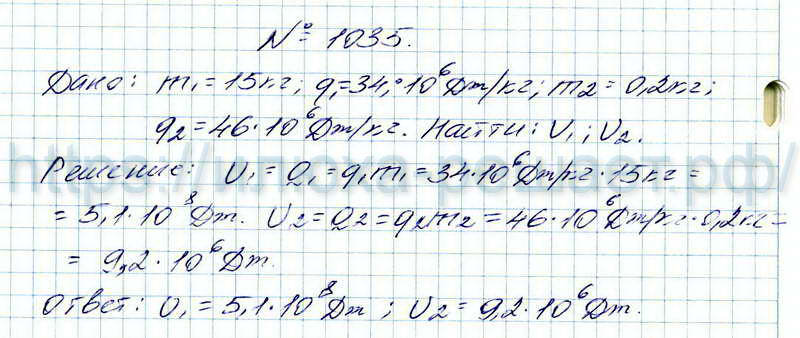 № 1035.
Дано: m₁ = 15кг; q₁=34,·10⁶Дж/кг; m₂ = 0,2кг;
q₂ = 46·10⁶Дж/кг. Найти: U₁; U₂.
Решение: U₁ = Q₁ = q₁m₁ = 34·10⁶Дж/кг · 15кг =
= 5,1·10⁸Дж. U₂ = Q₂ = q₂m₂ = 46·10⁶Дж/кг·0,2кг =
= 9,2·10⁶Дж.
Ответ: U₁ = 5,1·10⁸Дж ; U₂ = 9,2·10⁶Дж.